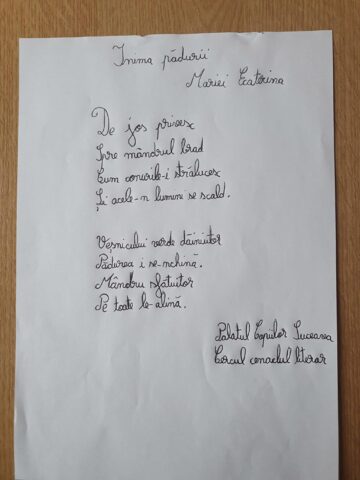 Inima pădurii
Mariei Ecaterina
De jos privesc
Spre mândrul brad
Cum conurile-i strălucesc
Și acele-n lumini se scald.
Veșnicului verde dăinuitor
Pădurea i se-nchină.
Mândru sfătuitor
Pe toate le-alină.
Palatul Copiilor Suceava
Cercul cenaclul literar